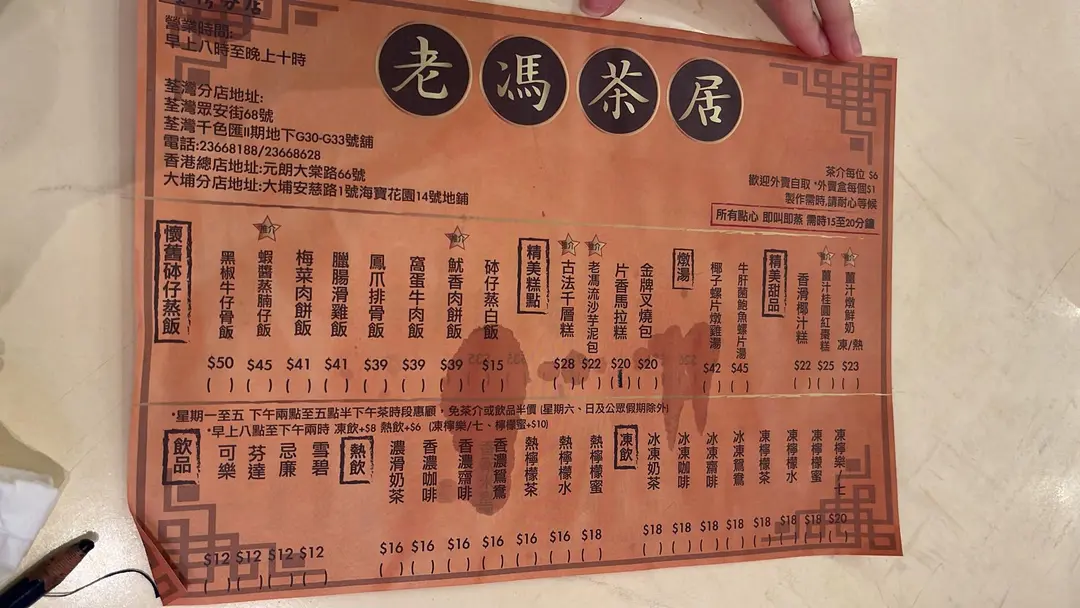 老馮茶居
營業時間:
早上八時至晚上十時
荃灣分店地址:
荃灣眾安街68號
荃灣千色匯II期地下G30-G33號舖
電話:23668188/23668628
香港總店地址:元朗大棠路66號
大埔分店地址:大埔安慈路1號海寶花園14號地舖
茶介每位 $6
歡迎外賣自取 *外賣盒每個$1
製作需時,請耐心等候
所有點心 即叫即蒸 需時15至20分鐘
懷舊砵仔蒸飯
黑椒牛仔骨飯 $50 ( )
推介 蝦醬蒸腩仔飯 $45 ( )
梅菜肉餅飯 $41 ( )
臘腸滑雞飯 $41 ( )
鳳爪排骨飯 $39 ( )
窩蛋牛肉飯 $39 ( )
推介 魷香肉餅飯 $39 ( )
砵仔蒸白飯 $15 ( )
精美糕點
推介 古法千層糕 $28 ( )
推介 老馮流沙芋泥包 $22 ( )
片香馬拉糕 $20 ( )
金牌叉燒包 $20 ( )
燉湯
椰子螺片燉雞湯 $42 ( )
牛肝菌鮑魚螺片湯 $45 ( )
精美甜品
香滑椰汁糕 $22 ( )
推介 薑汁桂圓紅棗糕 $25 ( )
推介 薑汁燉鮮奶 凍/熱 $23 ( )
*星期一至五 下午兩點至五點半下午茶時段惠顧,免茶介或飲品半價 (星期六、日及公眾假期除外)
*早上八點至下午兩時 凍飲+$8 熱飲+$6 (凍檸樂/七、檸檬蜜+$10)
飲品
可樂 $12 ( )
芬達 $12 ( )
忌廉 $12 ( )
雪碧 $12 ( )
熱飲
濃滑奶茶 $16 ( )
香濃咖啡 $16 ( )
香濃齋啡 $16 ( )
香濃鴛鴦 $16 ( )
熱檸檬茶 $16 ( )
熱檸檬水 $16 ( )
熱檸檬蜜 $18 ( )
凍飲
冰凍奶茶 $18 ( )
冰凍咖啡 $18 ( )
冰凍齋啡 $18 ( )
冰凍鴛鴦 $18 ( )
凍檸檬茶 $18 ( )
凍檸檬水 $18 ( )
凍檸檬蜜 $18 ( )
凍檸樂/七 $20 ( )